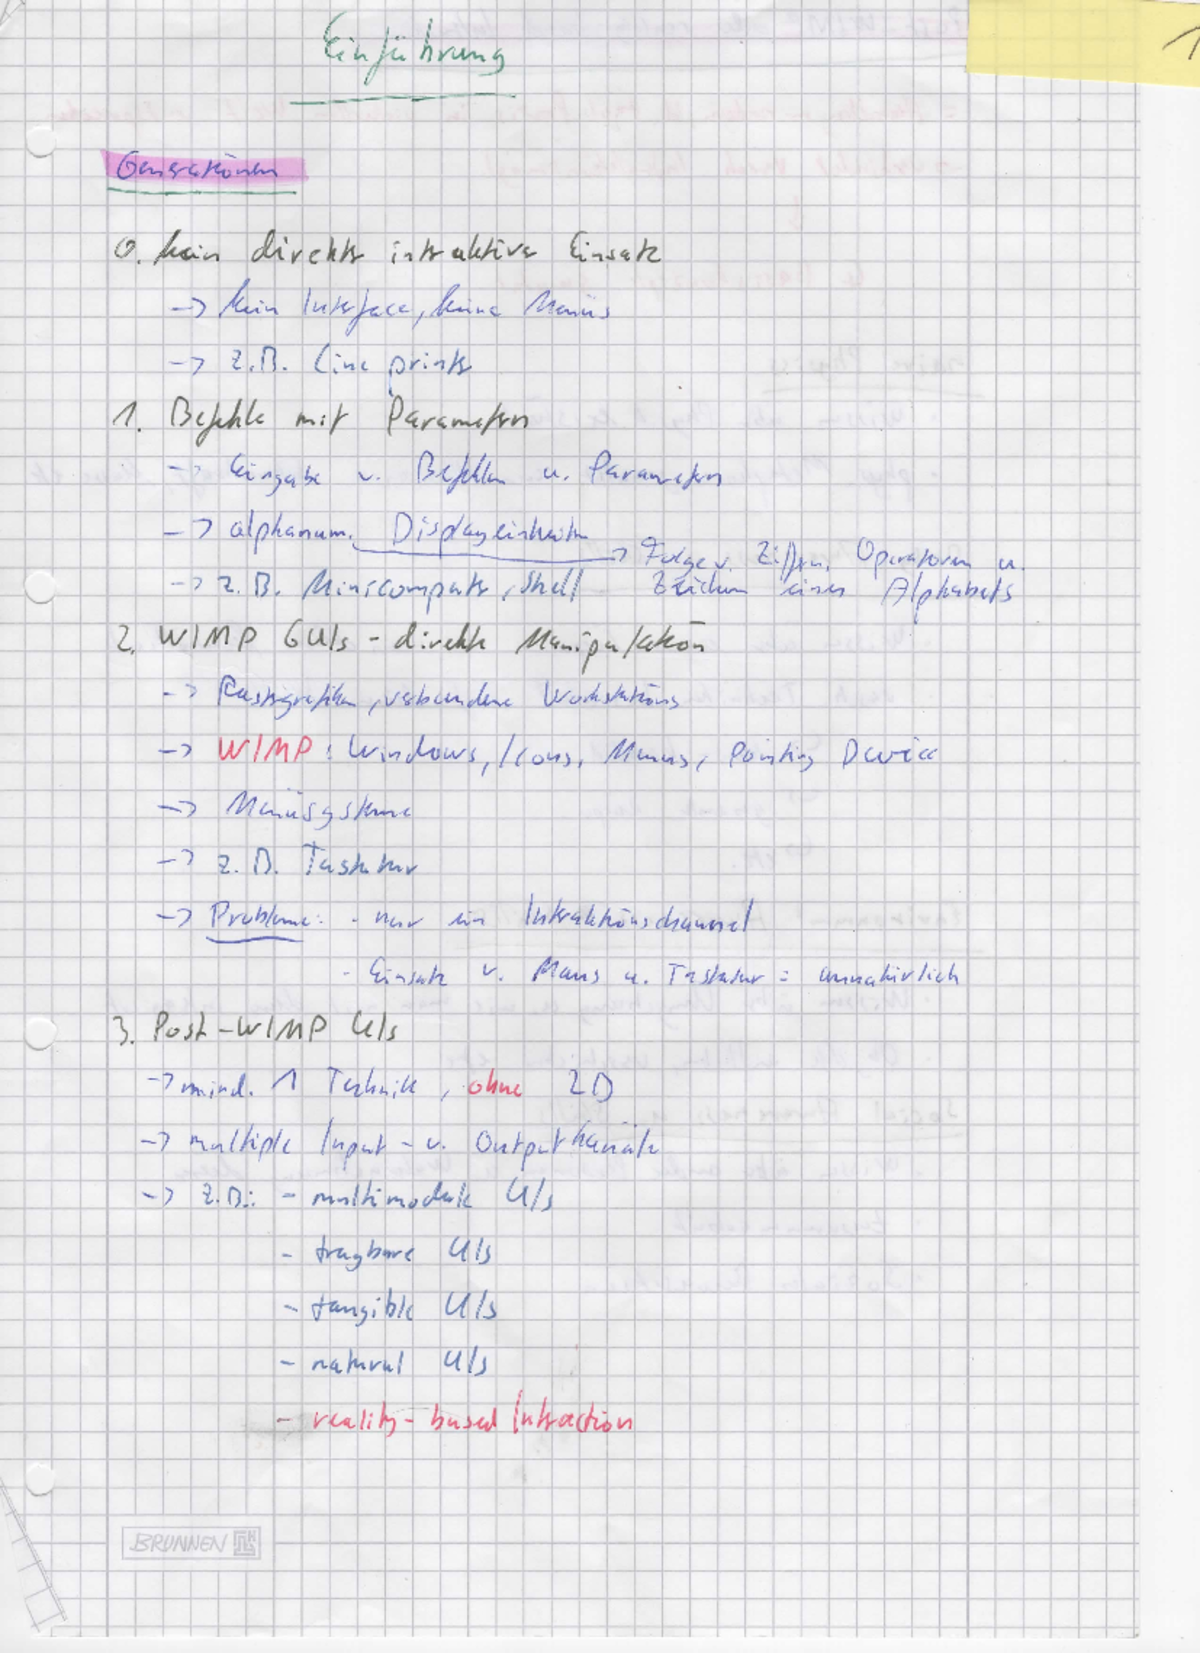 1
Einführung
Generationen
0. kein direkter interaktiver Einsatz
-> kein Interface, keine Menüs
-> z.B. Line printer
1. Befehle mit Parametern
-> Eingabe v. Befehlen u. Parametern
-> alphanum. Displayeinheiten -> Folge v. Ziffern, Operatoren u.
Zeichen eines Alphabets
-> z.B. Minicomputer, Shell
2. WIMP GUIs - direkte Manipulation
-> Rastergrafiken, verbundene Workstations
-> WIMP: Windows, Icons, Menus, Pointing Device
-> Menüsysteme
-> z.B. Tastatur
-> Probleme: - nur ein Interaktionschannel
- Einsatz v. Maus u. Tastatur = unnatürlich
3. Post-WIMP UIs
-> mind. 1 Technik, ohne 2D
-> multiple Input- u. Outputkanäle
-> z.B.: - multimodale UIs
- tragbare UIs
- tangible UIs
- natural UIs
- reality-based Interaction
BRUNNEN